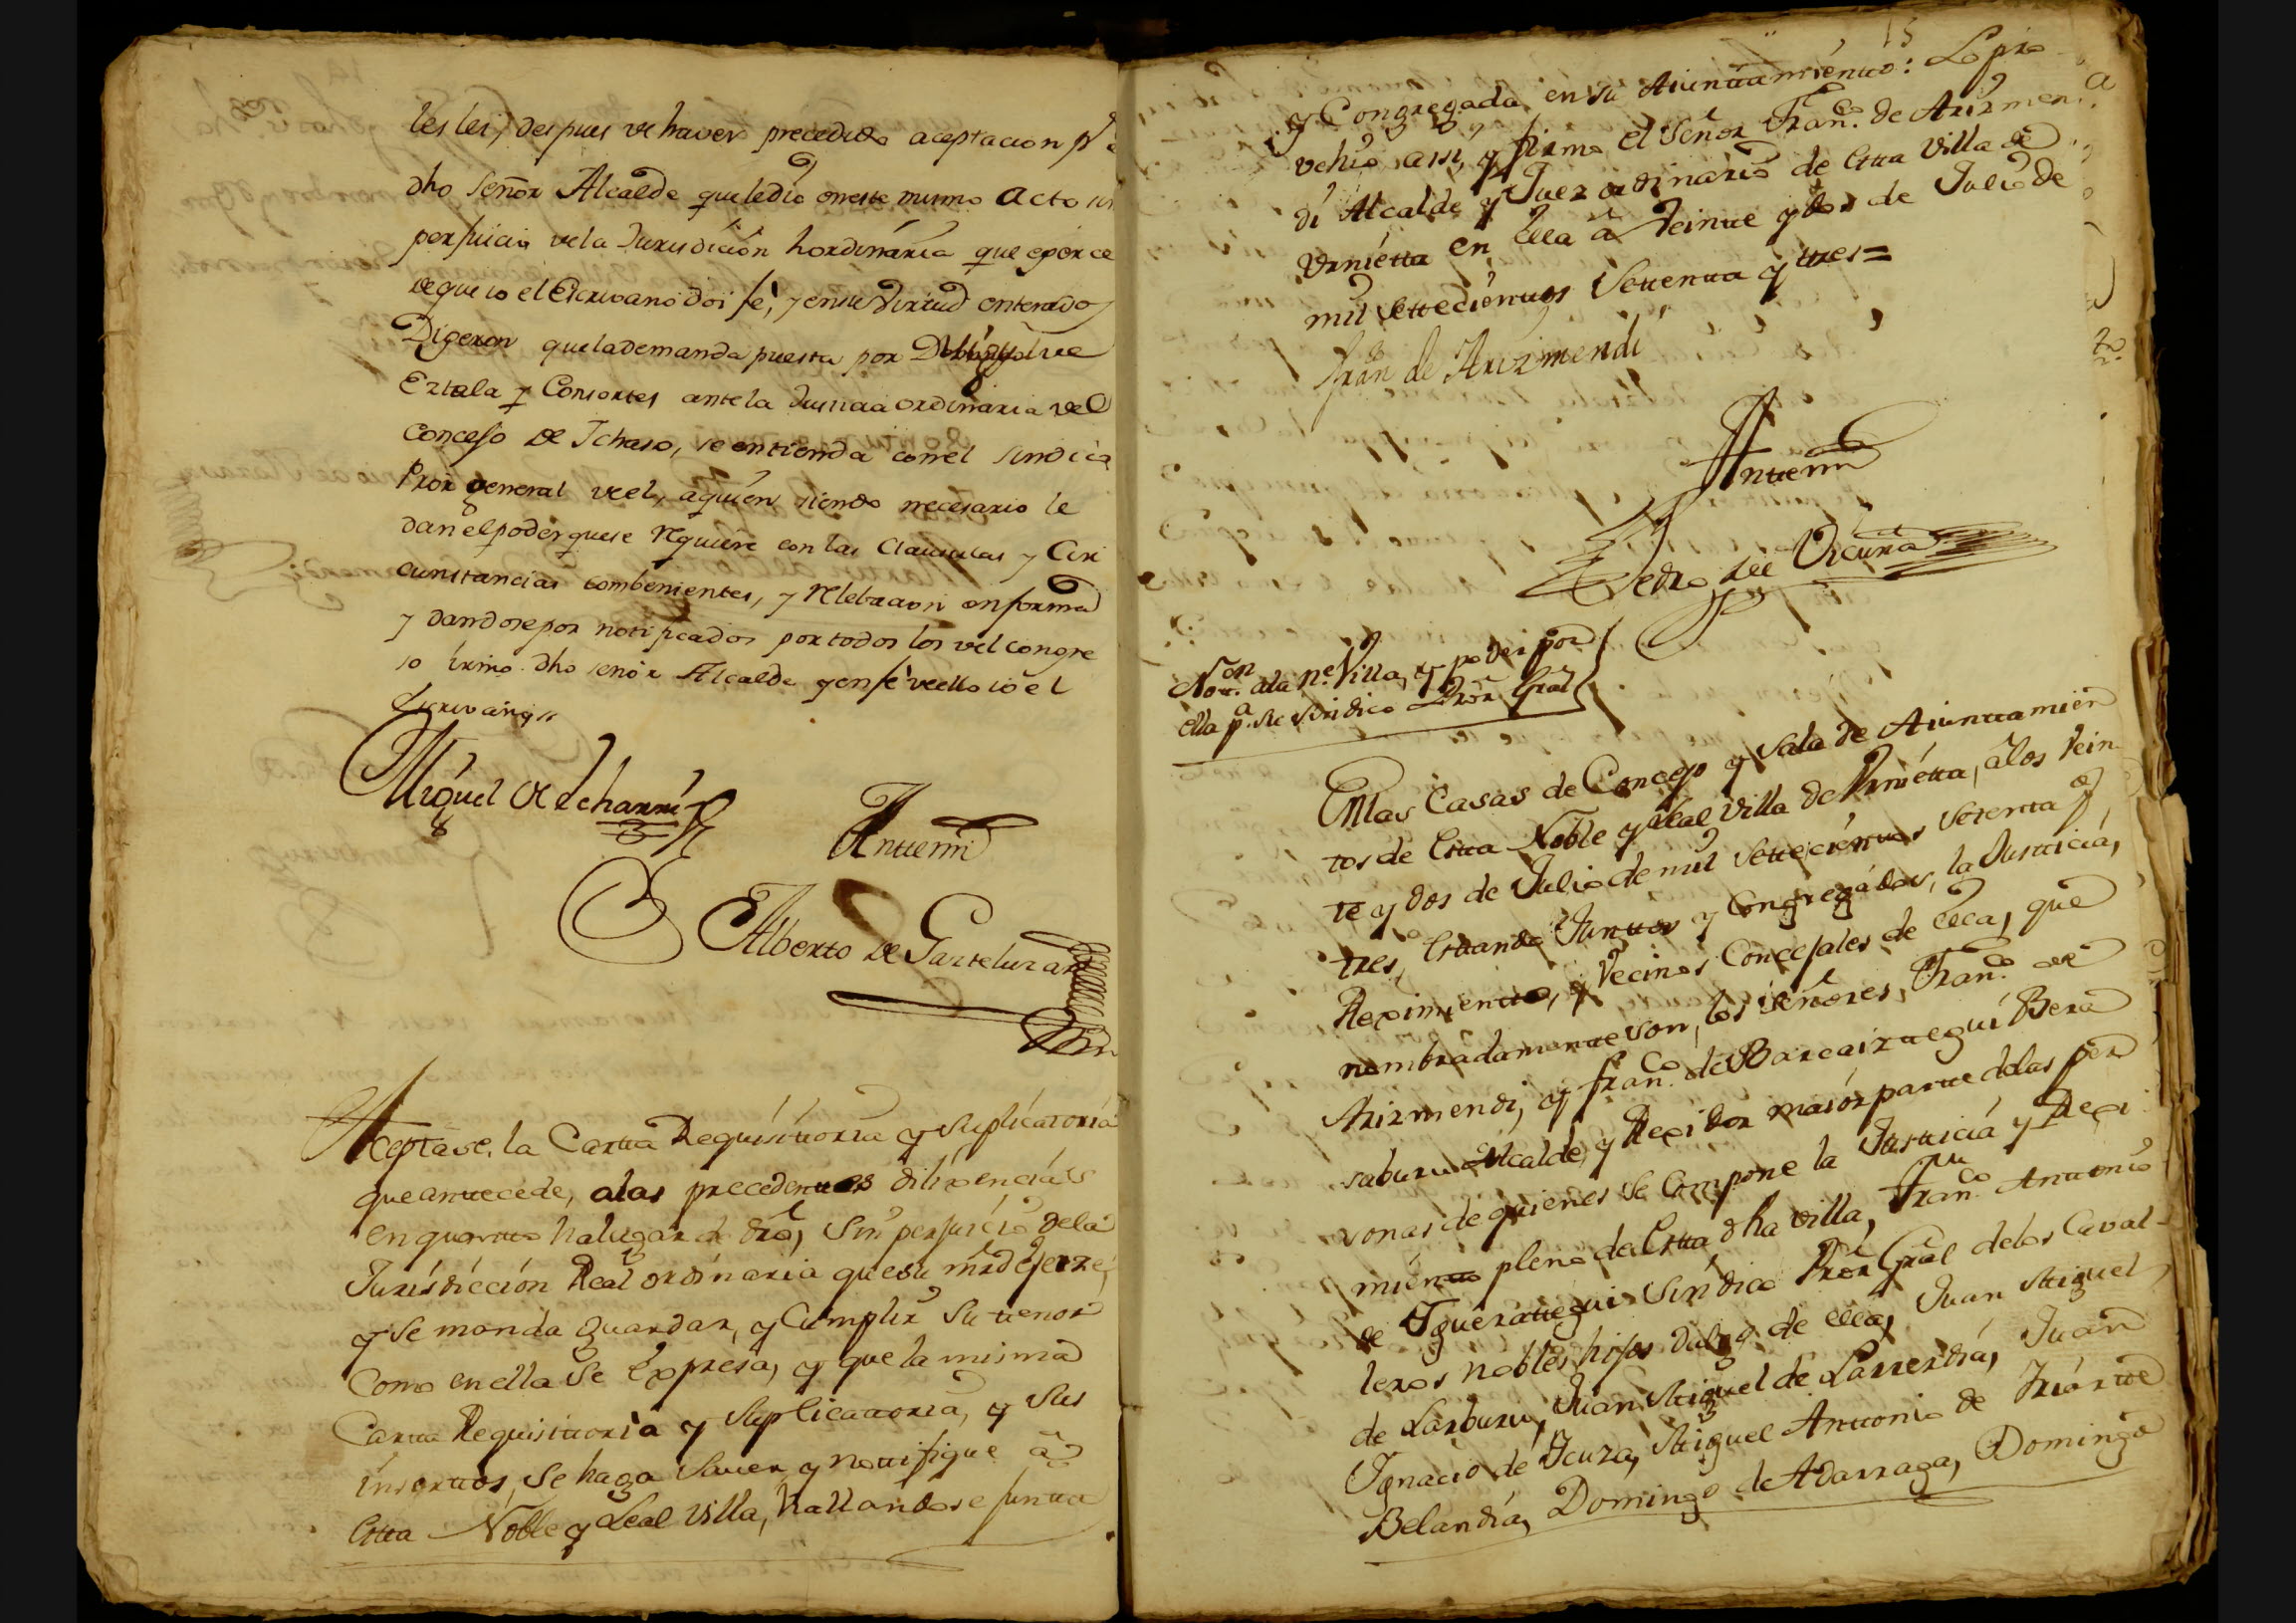 les lei, despues de haver precedido aceptacion pr
dho señor Alcalde que le dio en este mismo acto sin
perjuicio de la Jurisdicion hordinaria que egerce
de que io el Escrivano doi fe, y en su virtud enterados
Digeron que la demanda puesta por
Eztala y Consortes ante la Justicia ordinaria del
Concejo de Ichaso, se entienda con el sindico
Pror general de el, a quien siendo necesario le
dan el poder que se requiere con las Clausulas y Cir
cunstancias combenientes, y relebacion en forma
y dandose por notificados por todos los del Congre
so firmo dho señor Alcalde y en fe de ello io el
Escrivano
Miguel de
Antemi
Alberto de Gaztelu
Aceptase, la Carta Requisitoria y suplicatoria
que antecede, a las precedentes dilixencias
en quanto ha lugar dro, sin perjuicio de la
Jurisdiccion Real ordinaria que su mrd ejerze,
y se manda guardar, y Cumplir su tenor
Como en ella se Expresa, y que la misma
Carta Requisitoria y Suplicatoria, y sus
insertos, se haga saver y nottifique â
Esta Noble y Leal Villa, hallandose junta
15
y Congregada en su Aiuntamiento: Lo pro
vehió assi, y firmo el Señor Franco. de Arizmen
di Alcalde y Juez ordinario de Esta Villa de
Urnieta en Ella â Veinte y dos de Julio de
mil settecientos settenta y tres=
Fran de Arizmendi
Antemi
Pedro de Vicuña
Noton. a la ne. Villa, y poder por
ella pa. su Sindico Pror Gral
En las Casas de Concejo y Sala de Aiuntamien
tos de Esta Noble y Leal Villa de Urnieta, â los Vein
te y dos de Julio de mil settecientos setenta y
tres, Estando Juntos y Congregados, la Justicia,
Reximiento, y Vecinos Concejales de Ella, que
nombradamente son, los señores, Franco. de
Arizmendi, y Franco. de Barcaiztegui Bera
saburu Alcalde, y Rexidor maior parte de las per
sonas de quienes se Compone la Justicia y Rexi
miento pleno de Esta dha villa, Franco. Antonio
de Iguerategui Sindico Pror Gral de los Caval
leros nobles hijos dalgo de Ella, Juan Miguel
de Larburu, Juan Miguel de Larrerdia, Juan
Ignacio de Icuza, Miguel Antonio de Iriarte
Belandia, Domingo de Adarraga, Domingo